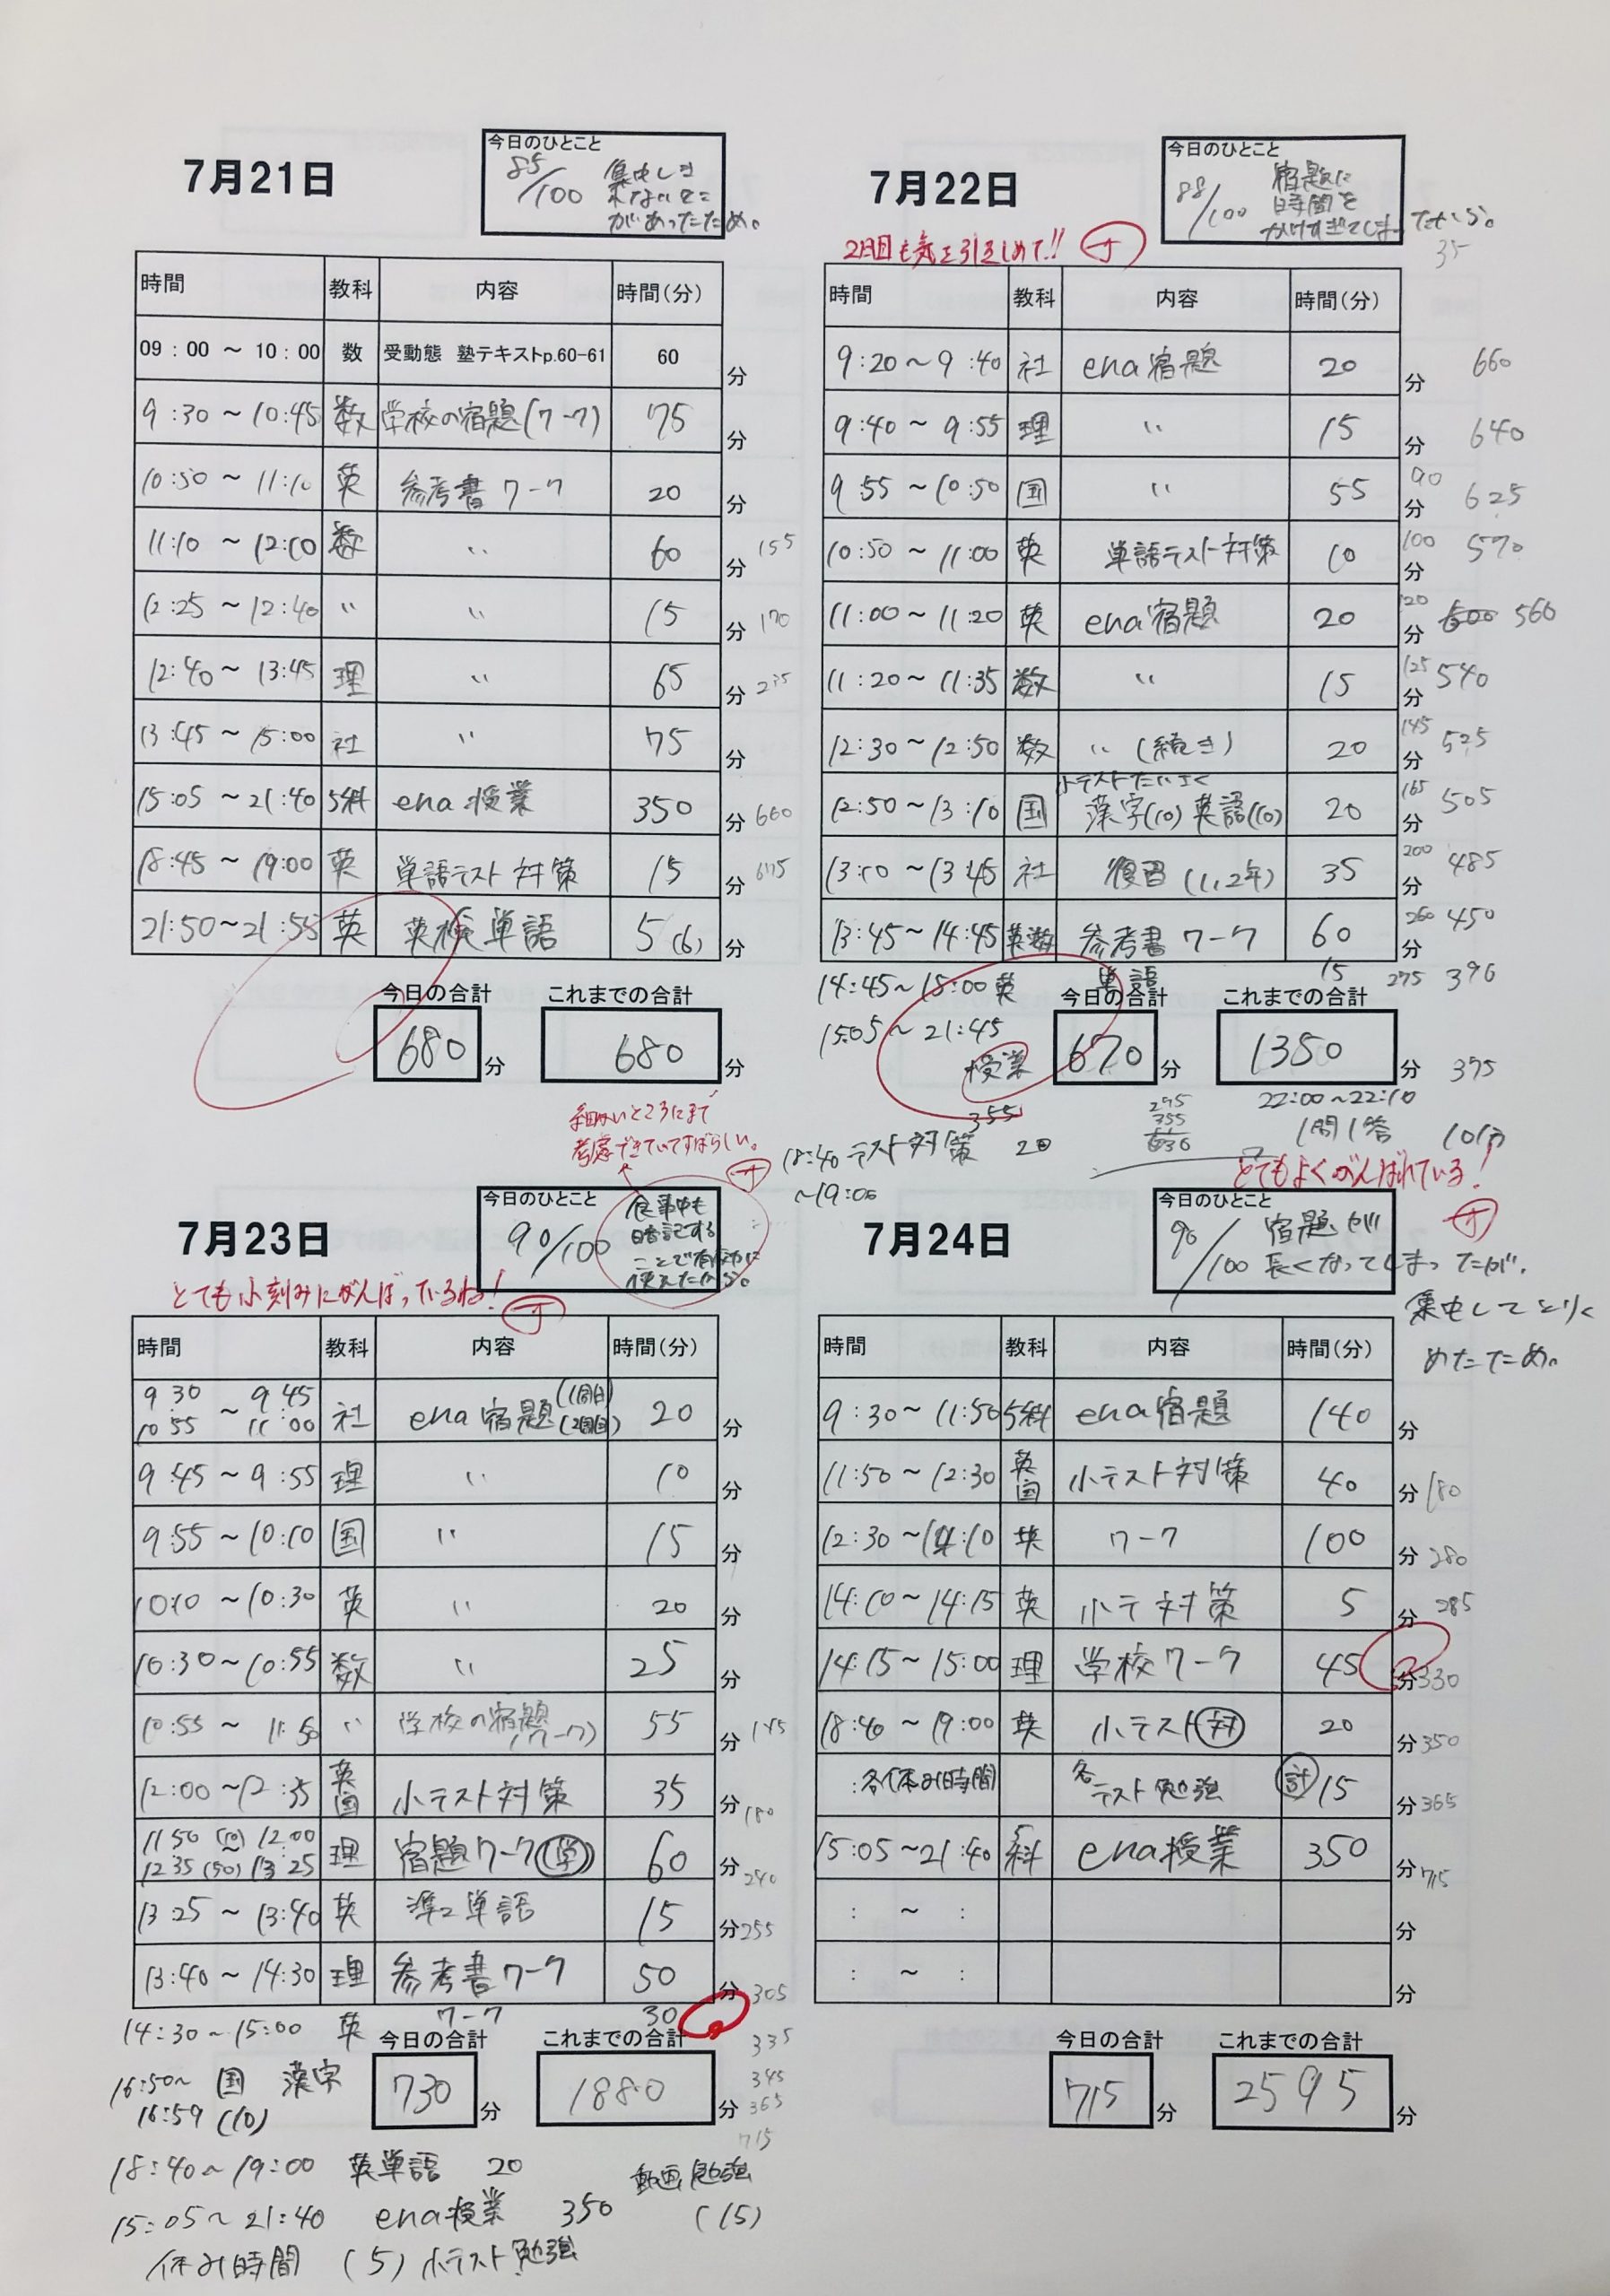 7月21日
今日のひとこと
85/100
集中しき
れないとこ
があったため。
時間 教科 内容 時間(分)
09:00 ~ 10:00 数 受動態 塾テキストp.60-61 60 分
9:30 ~ 10:45 数 学校の宿題(ワーク) 75 分
10:50 ~ 11:10 英 参考書ワーク 20 分
11:10 ~ 12:10 数 〃 60 分 155
12:25 ~ 12:40 〃 〃 15 分 170
12:40 ~ 13:45 理 〃 65 分 235
13:45 ~ 15:00 社 〃 75 分
15:05 ~ 21:40 5科 ena 授業 350 分 660
18:45 ~ 19:00 英 単語テスト対策 15 分 675
21:50 ~ 21:55 英 英検単語 5(6) 分
今日の合計 これまでの合計
680 分 680 分
7月22日
今日のひとこと
88/100
宿題に
時間を
かけすぎてしまったから。
35
2日目も気を引きしめて!!
時間 教科 内容 時間(分)
9:20 ~ 9:40 社 ena宿題 20 分 660
9:40 ~ 9:55 理 〃 15 分 640
9:55 ~ 10:50 国 〃 55 90 分 625
10:50 ~ 11:00 英 単語テスト対策 10 100 分 570
11:00 ~ 11:20 英 ena宿題 20 120 分 560
11:20 ~ 11:35 数 〃 15 125 分 540
12:30 ~ 12:50 数 〃 (続き) 20 145 分 525
小テストたいさく
12:50 ~ 13:10 国 漢字(10) 英語(10) 20 165 分 505
13:10 ~ 13:45 社 復習 (1,2年) 35 200 分 485
13:45 ~ 14:45 英数 参考書ワーク 60 260 分 450
14:45 ~ 15:00 英 単語 15 275 390
今日の合計 これまでの合計
15:05 ~ 21:45
授業 355
670 分 1350 分 375
295
355
630
22:00 ~ 22:10
1問1答 10分
18:40 テスト対策 20
~19:00
細かいところにまで
考慮できていてすばらしい。
7月23日
今日のひとこと
90/100
食事中も
暗記する
ことで有効に
使えたから。
とても小刻みにがんばっているね!
時間 教科 内容 時間(分)
9 30 ~ 9 45
10 55 11:00 社 ena宿題 (1周目) (2周目) 20 分
9:45 ~ 9:55 理 〃 10 分
9:55 ~ 10:10 国 〃 15 分
10:10 ~ 10:30 英 〃 20 分
10:30 ~ 10:55 数 〃 25 分
10:55 ~ 11:50 〃 学校の宿題(ワーク) 55 分 145
12:00 ~ 12:35 英国 小テスト対策 35 分 180
11 50 (10) 12:00
12 35 (50) 13 25 理 宿題ワーク(学) 60 分 240
13 25 ~ 13:40 英 準2単語 15 分 255
13:40 ~ 14:30 理 参考書ワーク 50 分 305
14:30 ~ 15:00 英 ワーク 30 335
今日の合計 これまでの合計
730 分 1880 分
345
365
715
16:50~ 国 漢字
16:59 (10)
18:40~19:00 英単語 20
動画勉強
(15)
15:05~21:40 ena授業 350
休み時間 (5) 小テスト勉強
とてもよくがんばれている!
7月24日
今日のひとこと
90/100
宿題が
長くなってしまったが、
集中してとりく
めたため。
時間 教科 内容 時間(分)
9:30 ~ 11:50 5科 ena宿題 140 分
11:50 ~ 12:30 英国 小テスト対策 40 分 180
12:30 ~ 14:10 英 ワーク 100 分 280
14:10 ~ 14:15 英 小テ対策 5 分 285
14:15 ~ 15:00 理 学校ワーク 45 分 330
18:40 ~ 19:00 英 小テスト(対) 20 分 350
:各休み時間 各テスト勉強 計 15 分 365
15:05 ~ 21:40 5科 ena授業 350 分 715
: ~ : 分
: ~ : 分
今日の合計 これまでの合計
715 分 2595 分